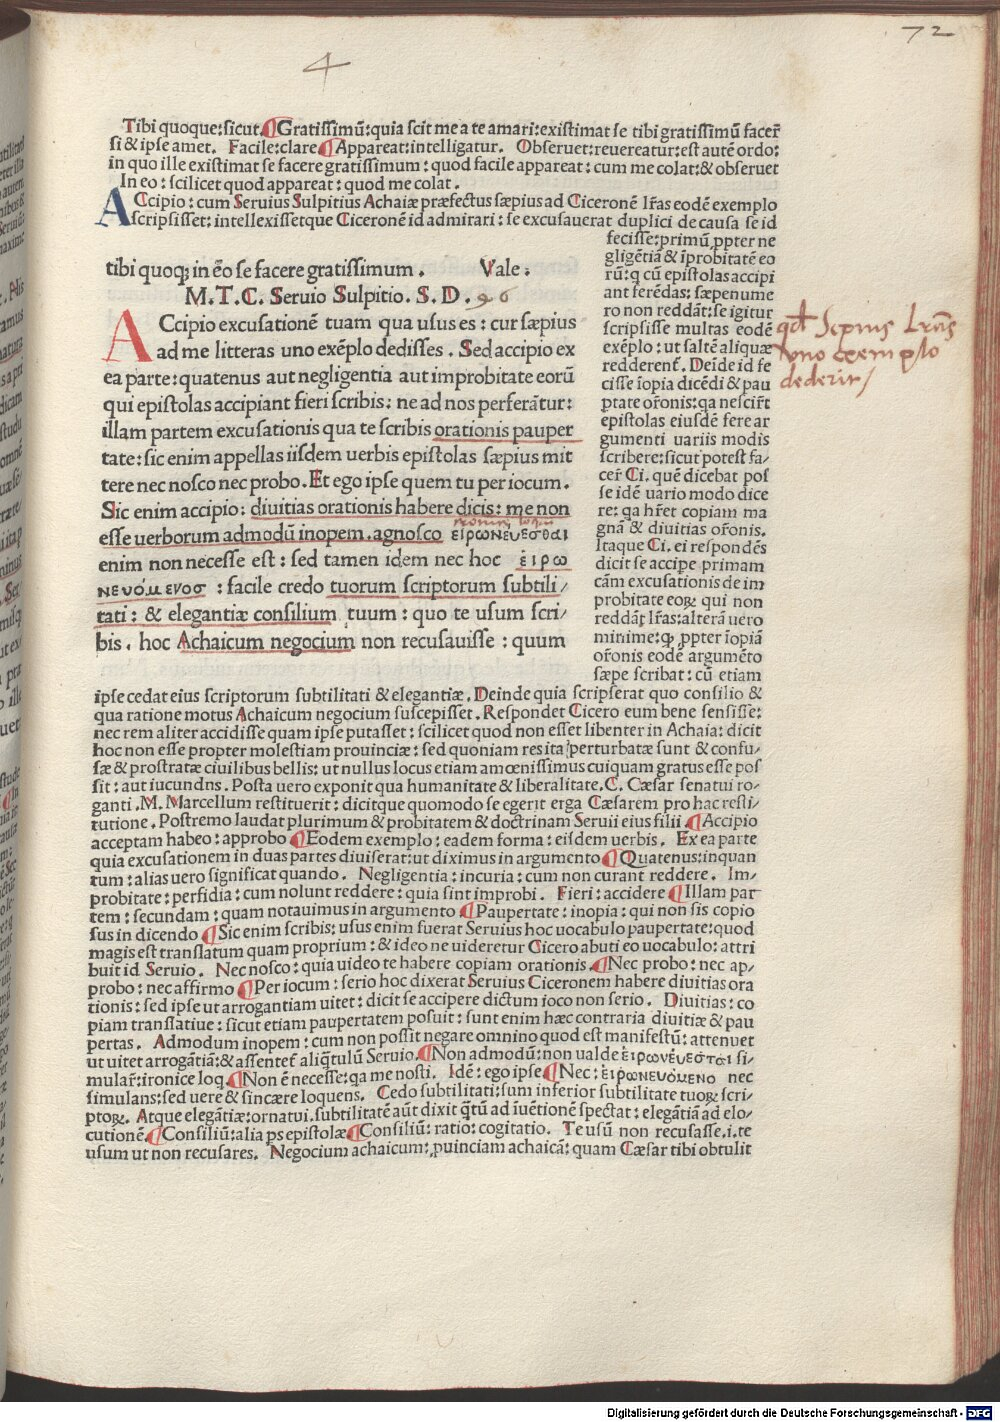 72
4
Tibi quoque:sicut.¶Gratissimū:quia scit me a te amari:existimat se tibi gratissimū facer̄
si & ipse amet. Facile:clare¶Appareat:intelligatur. Obseruet:reuereatur:est autē ordo:
in quo ille existimat se facere gratissimum : quod facile appareat : cum me colat:& obseruet
In eo : scilicet quod appareat : quod me colat .
ACcipio : cum Seruius Sulpitius Achaiæ præfectus sæpius ad Ciceronē lr̄as eodē exemplo
scripsisset: intellexissetque Ciceronē id admirari : se excusauerat duplici de causa se id
fecisse:primū ꝓpter ne
gligētiā & īprobitatē eo
rū: q cū epistolas accipi
ant ferēdas: sæpenume
ro non reddāt: se igitur
scripsisse multas eodē
exēplo: ut saltē aliquæ
redderent̄. Deīde id fe
cisse īopia dicēdi & pau
ptate or̄onis: qa nescir̄t
epistolas eiusdē fere ar
gumenti uariis modis
scribere: sicut potest fa-
cer̄ Ci. quē dicebat pos
se idē uario modo dice
re: qa hr̄et copiam ma
gnā & diuitias or̄onis.
Itaque Ci. ei respondēs
dicit se accipe primam
cām excusationis de im
probitate eoꝝ qui non
reddāt lr̄as: alterā uero
minime: qꝫ ꝓpter īopiā
or̄onis eodē argumēto
sæpe scribat : cū etiam
tibi quoqꝫ in eō se facere gratissimum . Vale .
M. T. C. Seruio Sulpitio. S. D. 96
ACcipio excusationē tuam qua usus es : cur sæpius
ad me litteras uno exēplo dedisses . Sed accipio ex
ea parte: quatenus aut negligentia aut improbitate eorū
qui epistolas accipiant fieri scribis: ne ad nos perferātur:
illam partem excusationis qua te scribis orationis pauper
tate: sic enim appellas iisdem uerbis epistolas sæpius mit
tere nec nosco nec probo. Et ego ipse quem tu per iocum .
Sic enim accipio: diuitias orationis habere dicis: me non
esse uerborum admodū inopem . agnosco εἰρωνέυεσθαι
enim non necesse est : sed tamen idem nec hoc εἰρω
νευόμενοσ : facile credo tuorum scriptorum subtili/
tati: & elegantiæ consilium tuum : quo te usum scri/
bis . hoc Achaicum negocium non recusauisse : quum
qd Sepius Lr̄as
vno exemplo
dederit/
ipse cedat eius scriptorum subtilitati & elegantiæ . Deinde quia scripserat quo consilio &
qua ratione motus Achaicum negocium suscepisset . Respondet Cicero eum bene sensisse:
nec rem aliter accidisse quam ipse putasset : scilicet quod non esset libenter in Achaia: dicit
hoc non esse propter molestiam prouinciæ: sed quoniam res ita perturbatæ sunt & confu/
sæ & prostratæ ciuilibus bellis: ut nullus locus etiam amœnissimus cuiquam gratus esse pos
sit : aut iucundns . Posta uero exponit qua humanitate & liberalitate . C. Cæsar senatui ro-
ganti . M. Marcellum restituerit: dicitque quomodo se egerit erga Cæsarem pro hac resti/
tutione . Postremo laudat plurimum & probitatem & doctrinam Seruii eius filii ¶Accipio
acceptam habeo: approbo ¶Eodem exemplo: eadem forma: eisdem uerbis . Ex ea parte
quia excusationem in duas partes diuiserat:ut diximus in argumento ¶Quatenus:inquan
tum : alias uero significat quando . Negligentia : incuria : cum non curant reddere . Im-
probitate: perfidia: cum nolunt reddere: quia sint improbi . Fieri: accidere ¶Illam par
tem : secundam : quam notauimus in argumento ¶Paupertate: inopia: qui non sis copio
sus in dicendo ¶Sic enim scribis: usus enim fuerat Seruius hoc uocabulo paupertate:quod
magis est translatum quam proprium : & ideo ne uideretur Cicero abuti eo uocabulo: attri
buit id Seruio . Nec nosco: quia uideo te habere copiam orationis . ¶Nec probo: nec ap-
probo: nec affirmo ¶Per iocum : serio hoc dixerat Seruius Ciceronem habere diuitias ora
tionis: sed ipse ut arrogantiam uitet: dicit se accipere dictum ioco non serio . Diuitias: co
piam translatiue : sicut etiam paupertatem posuit : sunt enim hæc contraria diuitiæ & pau
pertas . Admodum inopem : cum non possit negare omnino quod est manifestū: attenuet
ut uitet arrogātiā:& assentet̄ aliq̄tulū Seruio.¶Non admodū:non ualde εἰρωνέυεσται si-
mular̄:ironice loq.¶Non ē necesse:qa me nosti . Idē: ego ipse¶Nec: εἰρωνευόμενο nec
simulans:sed uere & sincære loquens . Cedo subtilitati:sum inferior subtilitate tuoꝝ scri-
ptoꝝ. Atque elegātiæ:ornatui.subtilitatē aūt dixit q̄tū ad īuētionē spectat : elegātiā ad elo-
cutionē.¶Consiliū:alia ps epistolæ¶Consiliū: ratio: cogitatio . Te usū non recusasse.i.te
usum ut non recusares . Negocium achaicum: ꝓuinciam achaicā: quam Cæsar tibi obtulit
Digitalisierung gefördert durch die Deutsche Forschungsgemeinschaft - DFG